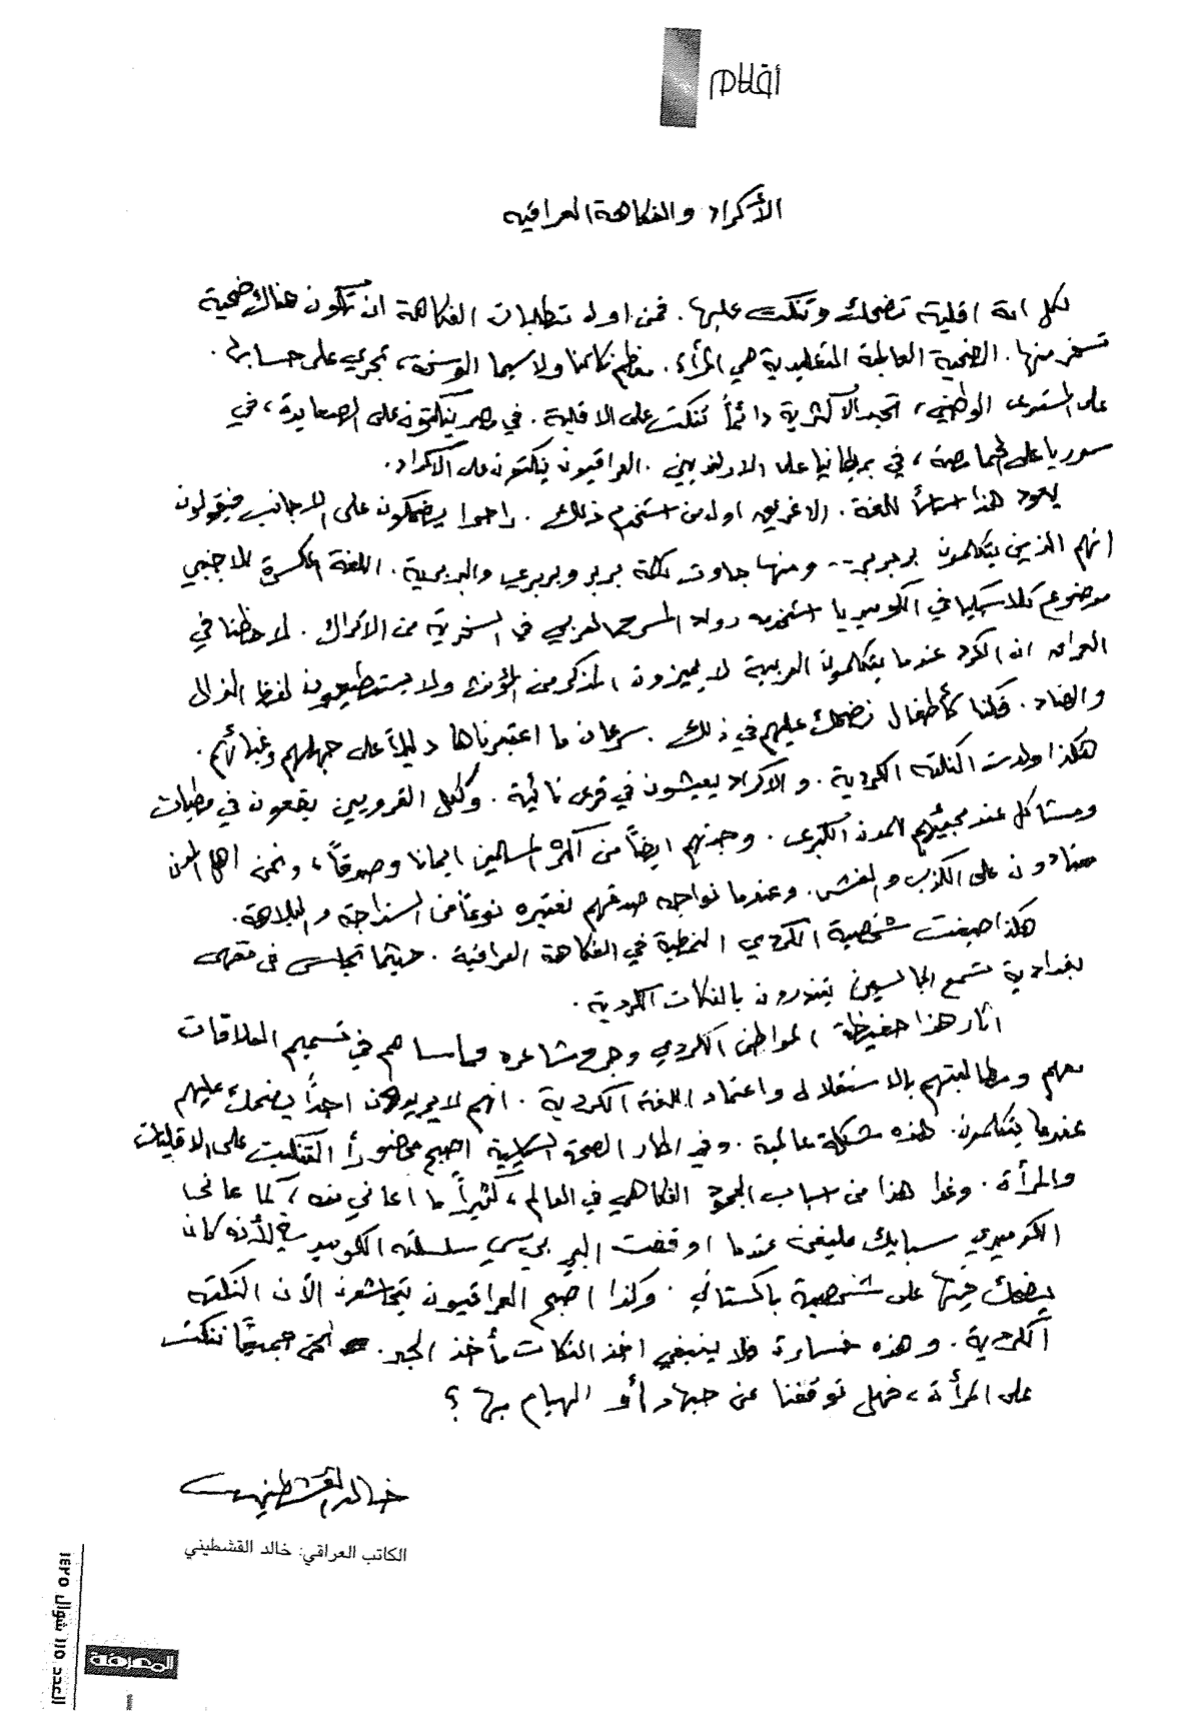 أقلام
الأكراد والفكاهة العراقيه
لكل امة اقلية تضحك وتنكت عليها. فمن اول متطلبات الفكاهة ان تكون هناك ضحية
تسخر منها. الضحية العالمية التقليدية هي المرأة. معظم نكاتنا ولاسيما الوسخة، تجري على حسابها.
على المستوى الوطني، تجد الأكثرية دائماً تنكت على الاقلية. في مصر ينكتون على الصعايدة، في
سوريا على الحماصنة، في بريطانيا على الارلنديين. العراقيون ينكتون على الاكراد.
يعود هذا اساساً للغة. الاغريق اول من استخدم ذلك. راحوا يضحكون على الاجانب فيقولون
انهم الذين يتكلمون بربربر... ومنها جاءت كلمة بربر وبربري والبربرية. اللغة المكسرة للاجنبي
موضوع كلاسيكيا في الكوميديا استخدمه رواد المسرح العربي في السخرية من الاتراك. لاحظنا في
العراق ان الكرد عندما يتكلمون العربية لا يميزون المذكر من المؤنث ولا يستطيعون لفظ الذال
والضاد. فكنا كأطفال نضحك عليهم في ذلك. سرعان ما اعتبرناها دليلاً على جهلهم وغبائهم.
هكذا ولدت النكتة الكردية. والاكراد يعيشون في قرى نائية. وككل القرويين يقعون في مطبات
ومشاكل عند مجيئهم للمدن الكبرى. وجدتهم ايضاً من اكثر المسلمين ايمانا وصدقاً، ونحن اهل المدن
معتادون على الكذب والغش. وعندما نواجه صدقهم نعتبره نوعاً من السذاجة والبلاهة.
هكذا صيغت شخصية الكردي النمطية في الفكاهة العراقية. حيثما تجلس في مقهى
بغدادية تسمع الجالسين يتندرون بالنكات الكردية.
اثار هذا حفيظة المواطن الكردي وجرح مشاعره مما ساهم في تسميم العلاقات
معهم ومطالبتهم بالاستقلال واعتماد اللغة الكردية. انهم لا يريدون احداً يضحك عليهم
عندما يتكلمون. هذه مشكلة عالمية. وفي اطار الصحة السياسية اصبح محضوراً التنكيت على الاقليات
والمرأة. وغدا هذا من اسباب الجمود الفكاهي في العالم، كثيراً ما اعاني منه، كما عانى
الكوميدي سبايك مليغن عندما اوقفت البي بي سي سلسلته الكوميدية لأنه كان
يضحك فيها على شخصية باكستاني. وكذا اصبح العراقيون يتحاشون الآن النكتة
الكردية. وهذه خسارة فلا ينبغي اخذ النكات مأخذ الجد. نحن جميعًا ننكت
على المرأة، فهل توقفنا عن حبها أو الهيام بها؟
خالد القشطيني
الكاتب العراقي: خالد القشطيني
المعرفة
العدد ١١٥ شوال ١٤٢٥